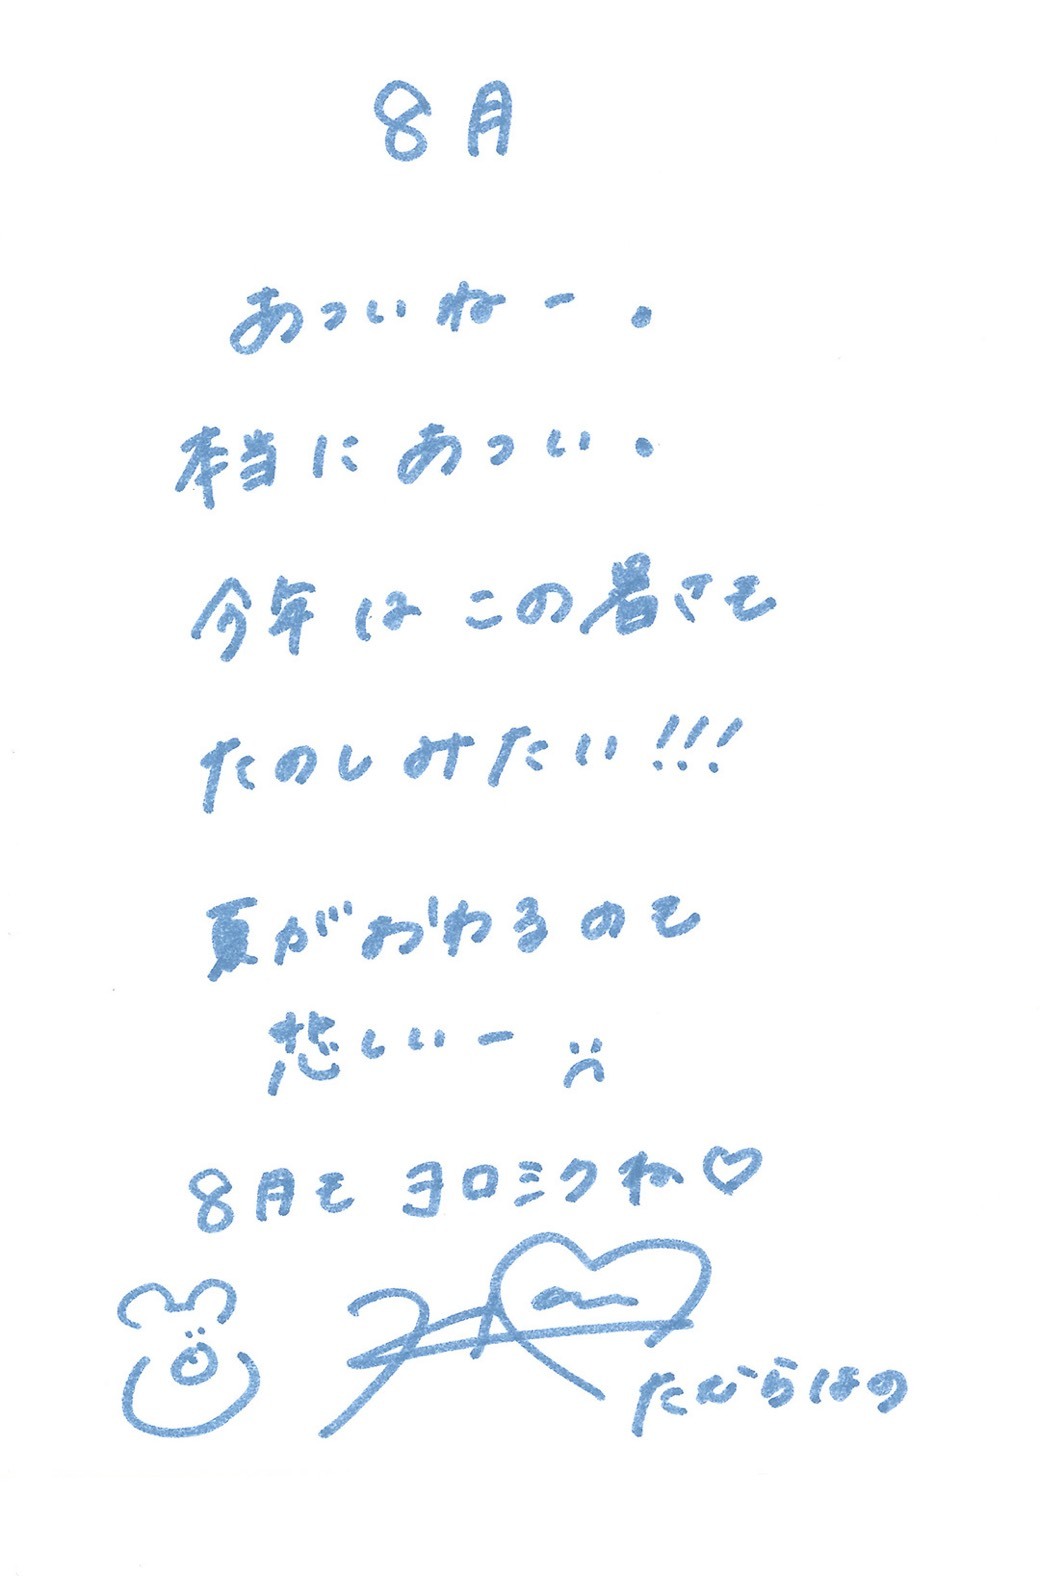 8月
あついねー.
本当にあつい.
今年はこの暑さも
たのしみたい!!!
夏がおわるのも
悲しいー
8月もヨロミクね♡
たむらほの